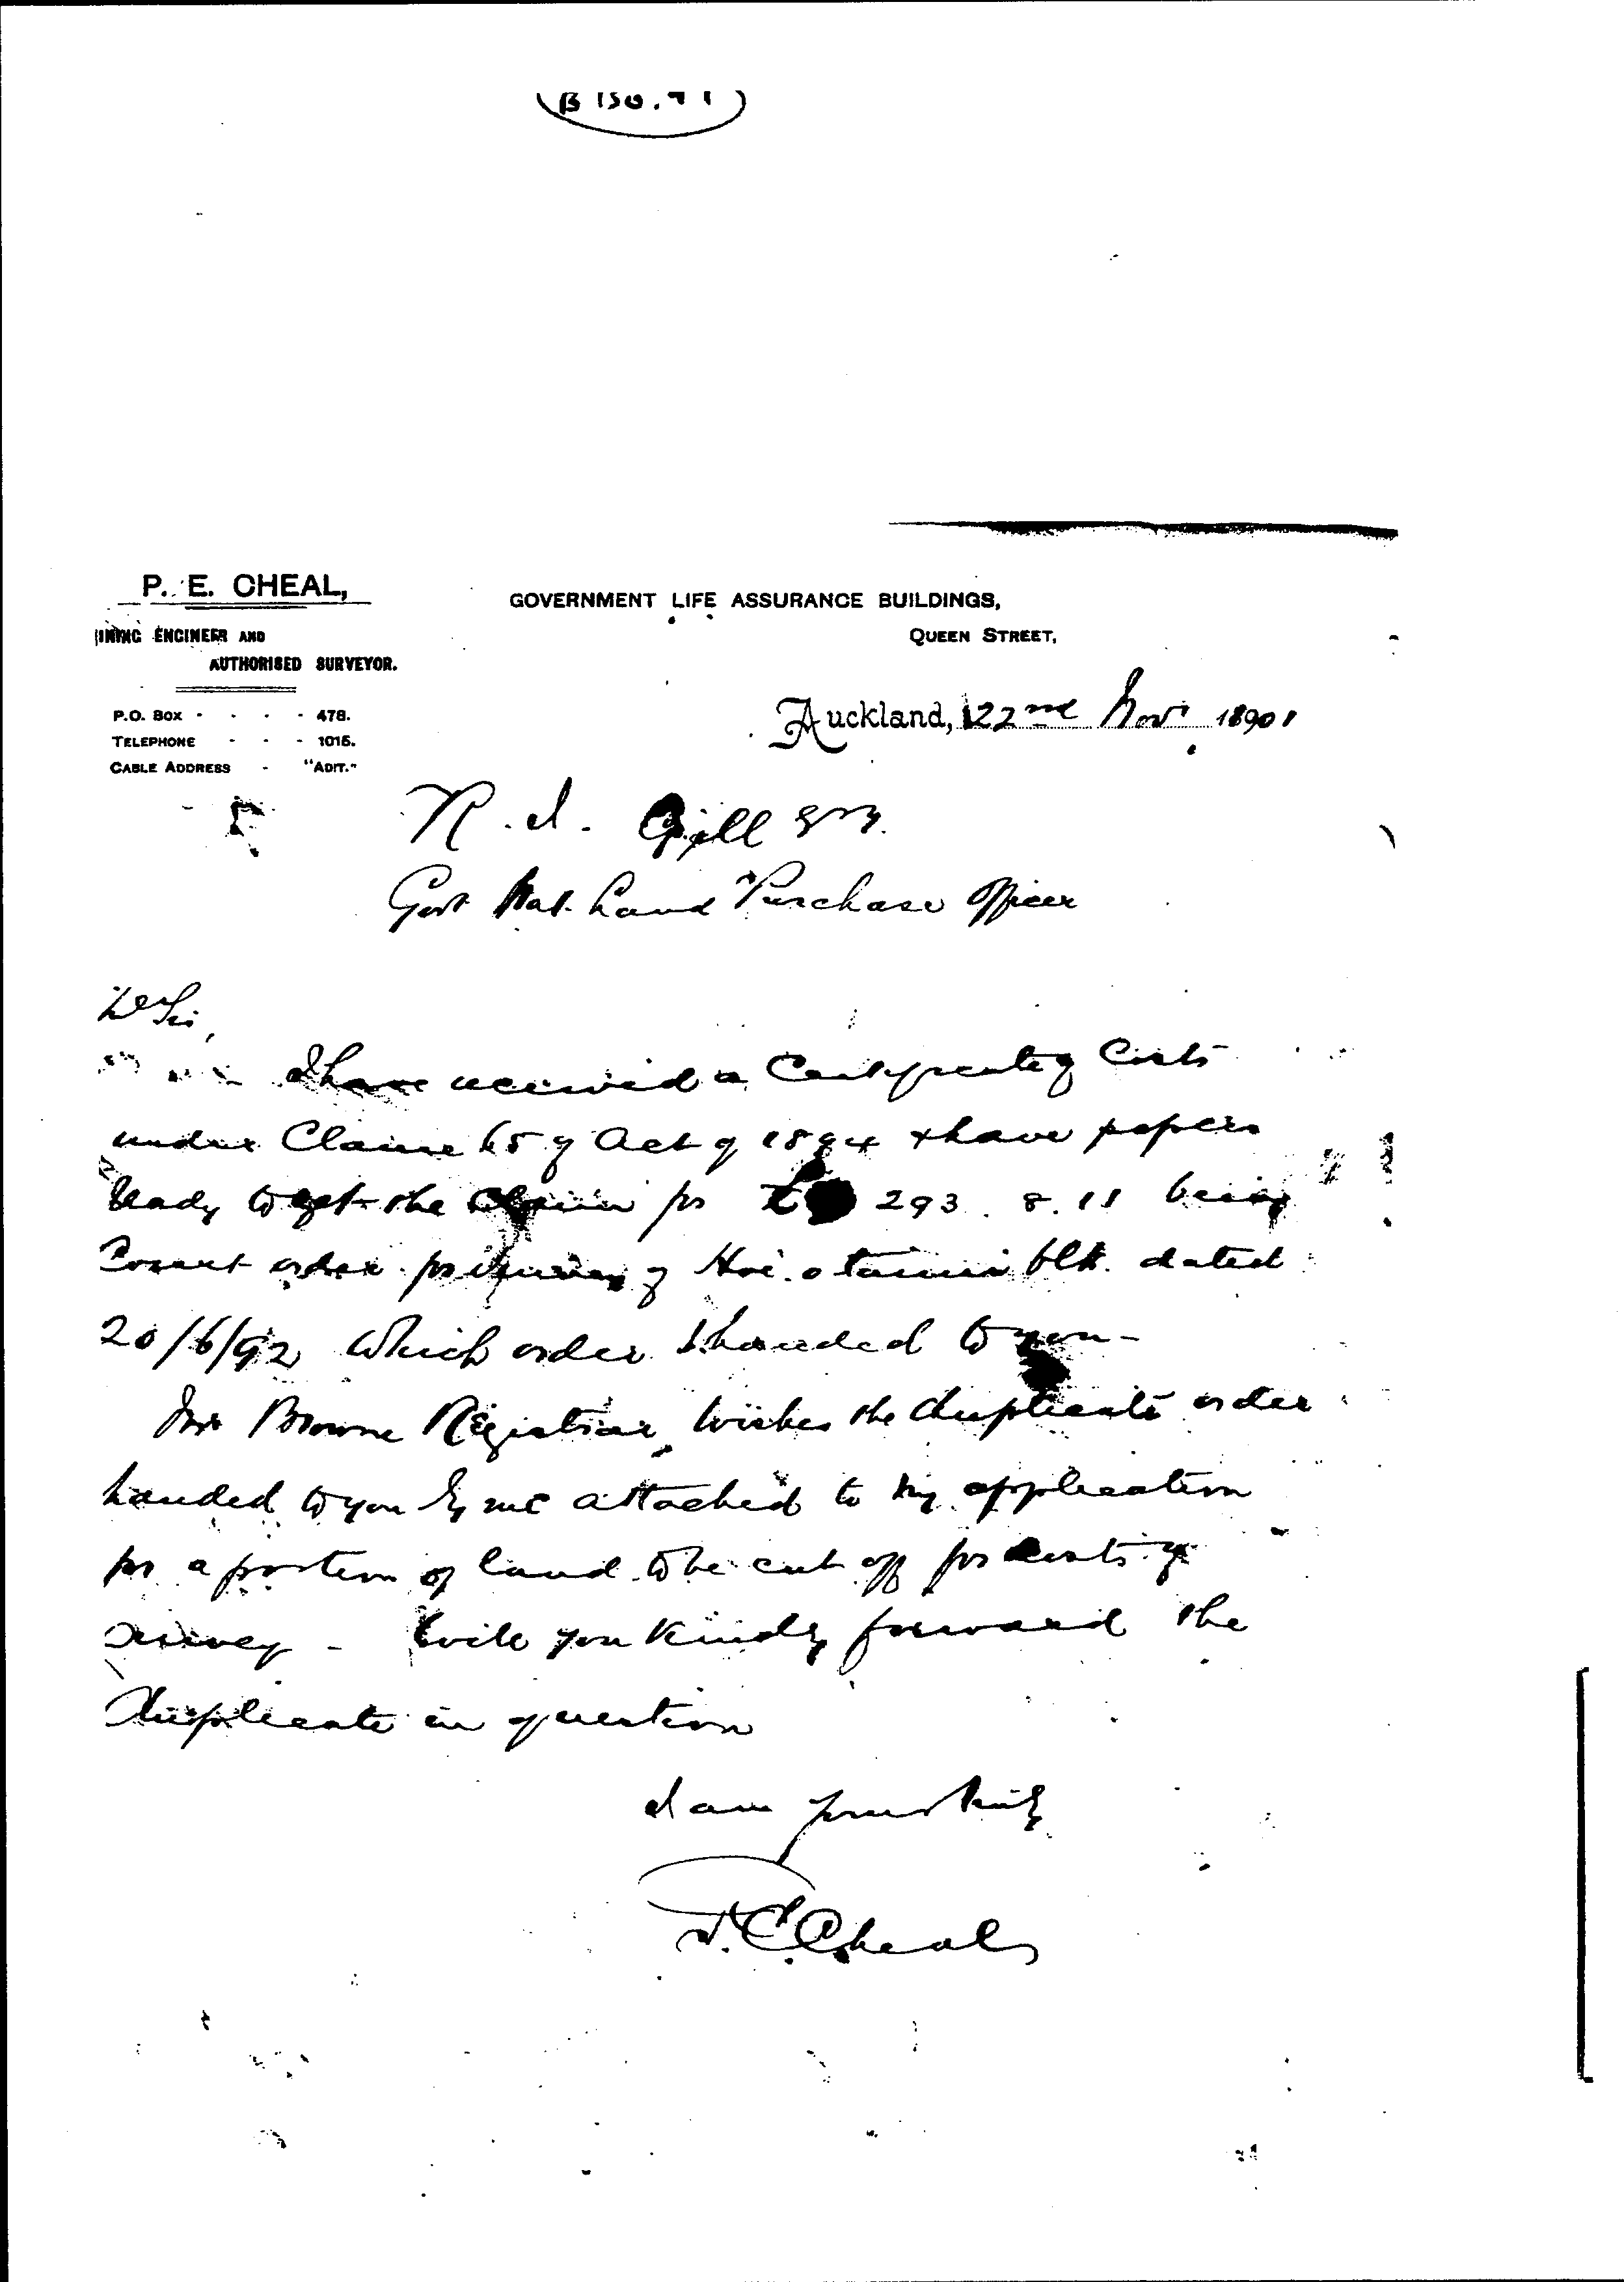 (B 150.71)
P. E. CHEAL,
MINING ENGINEER AND
AUTHORISED SURVEYOR.
P.O. BOX - - - - 478.
TELEPHONE - - - 1015.
CABLE ADDRESS - "ADIT."
GOVERNMENT LIFE ASSURANCE BUILDINGS,
QUEEN STREET,
Auckland, 22nd Novr 1901
Gill Esq.
Govt Nat. Land Purchase Officer
Dr Sir,
I have received a Certificate of Costs
under Clause 65 of Act of 1894 & have papers
ready to get the Claim for £ 293. 8. 11 being
Court order for survey of Hoe.o.tainui blk. dated
20/6/92 which order I handed to you -
Mr Browne Registrar, wishes the duplicate order
handed to you by me attached to my application
for a portion of land to be cut off for costs of
survey - Will you kindly forward the
duplicate in question
I am yours truly
P.E. Cheal